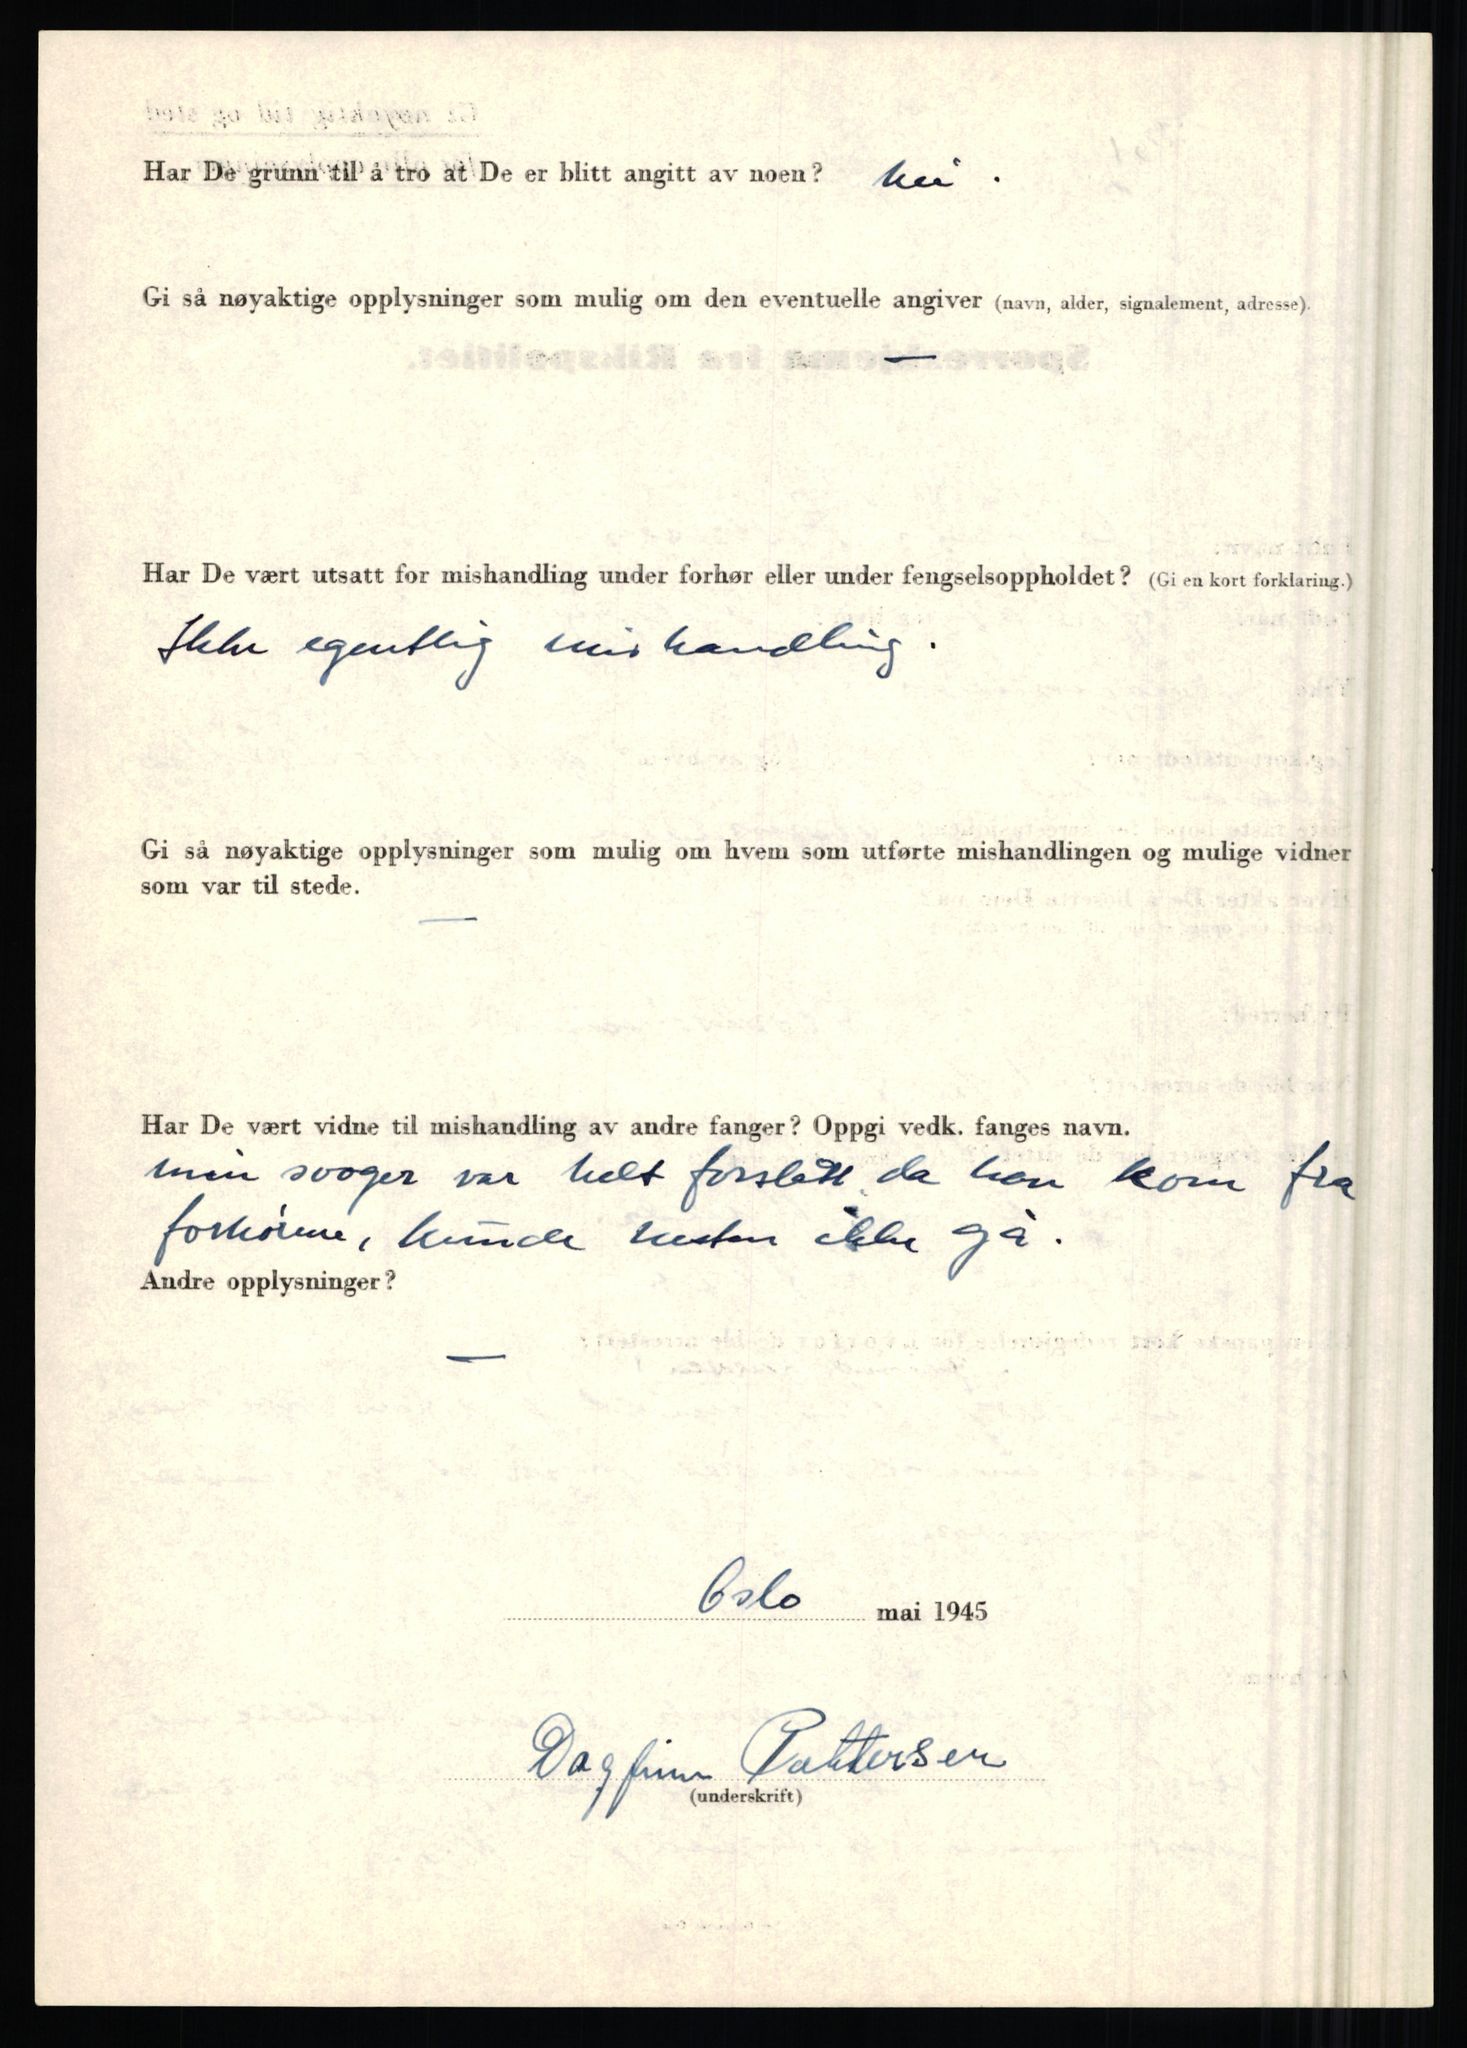 Har De grunn til å tro at De er blitt angitt av noen? Nei.
Gi så nøyaktige opplysninger som mulig om den eventuelle angiver (navn, alder, signalement, adresse).
—
Har De vært utsatt for mishandling under forhør eller under fengselsoppholdet? (Gi en kort forklaring.)
Ikke egentlig mishandling.
Gi så nøyaktige opplysninger som mulig om hvem som utførte mishandlingen og mulige vidner
som var til stede.
—
Har De vært vidne til mishandling av andre fanger? Oppgi vedk. fanges navn.
min svoger var helt forslått da han kom fra
forhörene, kunde nesten ikke gå.
Andre opplysninger?
—
Oslo mai 1945
Dagfinn
(underskrift)